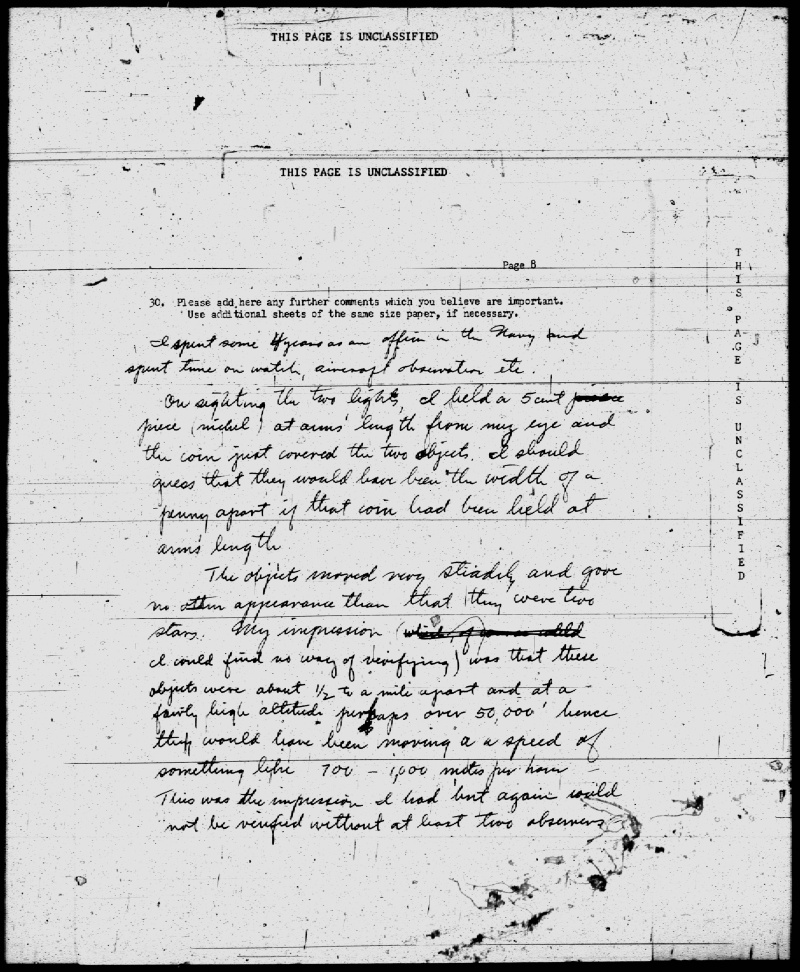 THIS PAGE IS UNCLASSIFIED
THIS PAGE IS UNCLASSIFIED
Page 8
30. Please add here any further comments which you believe are important.
Use additional sheets of the same size paper, if necessary.
I spent some 4 years as an officer in the Navy and
spent time on watch, aircraft observation etc.
On sighting the two lights, I held a 5 cent
piece (nickel) at arms' length from my eye and
the coin just covered the two objects. I should
guess that they would have been the width of a
penny apart if that coin had been held at
arms length
The objects moved very steadily and gave
no other appearance than that they were two
stars. My impression (
I could find no way of verifying) was that these
objects were about 1/2 to a mile apart and at a
fairly high altitude perhaps over 50,000' hence
they would have been moving a a speed of
something like 700 - 1,000 miles per hour -
This was the impression I had but again could
not be verified without at least two observers
THIS PAGE IS UNCLASSIFIED